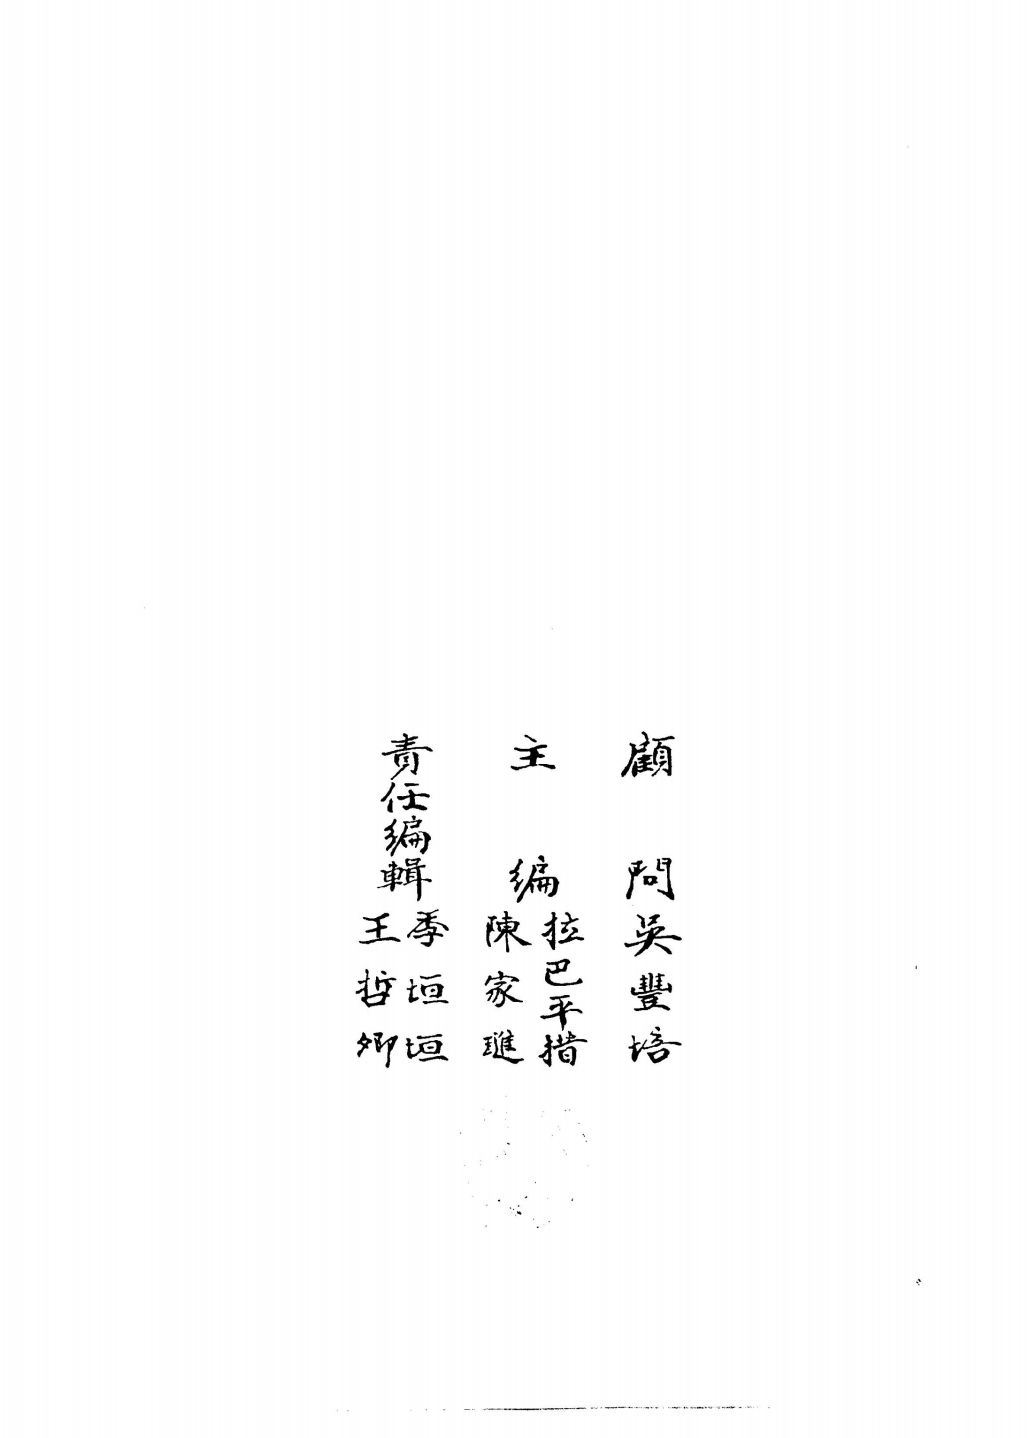 顧問 吳豐培
主編 拉巴平措
陳家璡
責任編輯 季垣垣
王哲卿